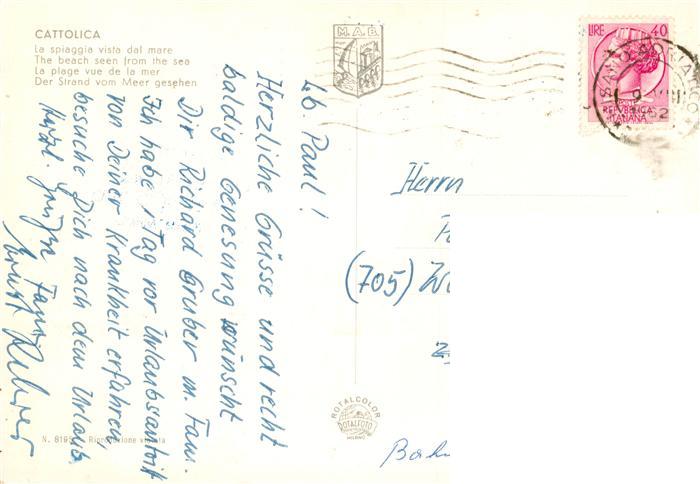 CATTOLICA
La spiaggia vista dal mare
The beach seen from the sea
La plage vue de la mer
Der Strand vom Meer gesehen
M. A. B.
LIRE 40
REPUBBLICA
ITALIANA
Lb. Paul!
Herzliche Grüsse und recht
baldige Genesung wünscht
Dir Richard Gruber m. Fam.
Ich habe 1 Tag vor Urlaubsantritt
von Deiner Krankheit erfahren,
besuche Dich nach dem Urlaub.
Herrn
(705)
ROTALCOLOR
ROTALFOTO
MILANO
N. 8195 - Riproduzione vietata